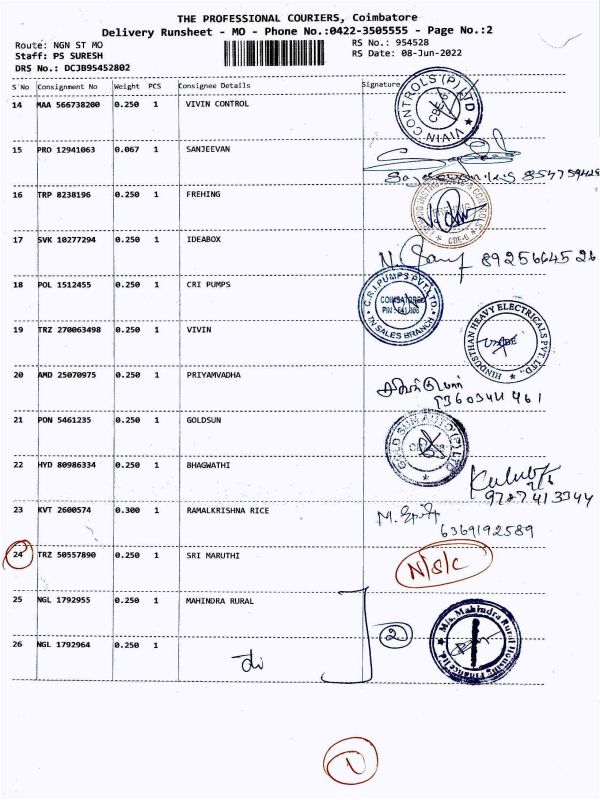 THE PROFESSIONAL COURIERS, Coimbatore
Delivery Runsheet - MO - Phone No.:0422-3505555 - Page No.:2
Route: NGN ST MO
RS No.: 954528
Staff: PS SURESH
RS Date: 08-Jun-2022
DRS No.: DCJB95452802
S No Consignment No Weight PCS Consignee Details Signature
14 MAA 566738200 0.250 1 VIVIN CONTROL
VIVIN CONTROLS (P) LTD
CBE-6
15 PRO 12941063 0.067 1 SANJEEVAN
16 TRP 8238196 0.250 1 FREHING
CBE-6
17 SVK 10277294 0.250 1 IDEABOX
8925664526
18 POL 1512455 0.250 1 CRI PUMPS
C.R.I PUMPS PVT.LTD.
COIMBATORE
PIN : 641 006
TN SALES BRANCH
19 TRZ 270063498 0.250 1 VIVIN
HINDUSTHAN HEAVY ELECTRICALS PVT. LTD.,
20 AMD 25070975 0.250 1 PRIYAMVADHA
21 PON 5461235 0.250 1 GOLDSUN
GOLD SUN AUTO (P) LTD
22 HYD 80986334 0.250 1 BHAGWATHI
9787413344
23 KVT 2600574 0.300 1 RAMALKRISHNA RICE
6369192589
24 TRZ 50557890 0.250 1 SRI MARUTHI
N/S/C
25 NGL 1792955 0.250 1 MAHINDRA RURAL
2
M/s. Mahindra Rural Housing Finance ltd.
26 NGL 1792964 0.250 1
1